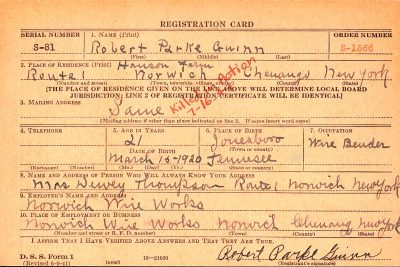 REGISTRATION CARD
SERIAL NUMBER 1. NAME (Print) ORDER NUMBER
S-81 Robert Parke Guinn S-1366
(First) (Middle) (Last)
2. PLACE OF RESIDENCE (Print) Hanson Farm
Route 1 Norwich Chenango New York
(Number and street) (Town, township, village, or city) (County) (State)
[THE PLACE OF RESIDENCE GIVEN ON THE LINE ABOVE WILL DETERMINE LOCAL BOARD
JURISDICTION; LINE 2 OF REGISTRATION CERTIFICATE WILL BE IDENTICAL]
3. MAILING ADDRESS
Same
Killed in Action
[Mailing address if other than place indicated on line 2. If same insert word same]
4. TELEPHONE 5. AGE IN YEARS 6. PLACE OF BIRTH 7. OCCUPATION
21 Jonesboro Wire Bender
DATE OF BIRTH (Town or county)
March 15-1920 Tennessee
(Exchange) (Number) (Mo.) (Day) (Yr.) (State or country)
8. NAME AND ADDRESS OF PERSON WHO WILL ALWAYS KNOW YOUR ADDRESS
Mrs Dewey Thompson Route 1 Norwich New York
9. EMPLOYER'S NAME AND ADDRESS
Norwich Wire Works
10. PLACE OF EMPLOYMENT OR BUSINESS
Norwich Wire Works Norwich Chenang New York
(Number and street or R. F. D. number) (Town) (County) (State)
I AFFIRM THAT I HAVE VERIFIED ABOVE ANSWERS AND THAT THEY ARE TRUE.
D. S. S. Form 1 16—21630 Robert Parke Guinn
(Revised 6-9-41) (Registrant's signature)